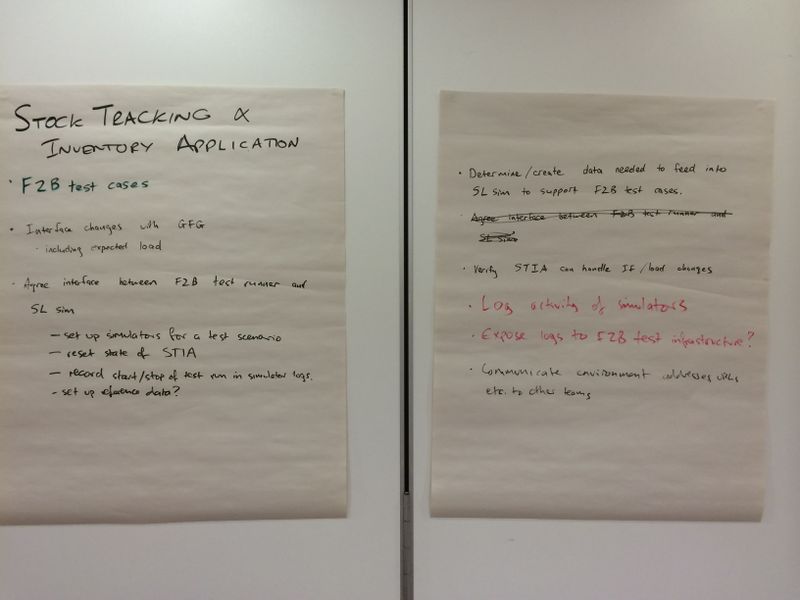 STOCK TRACKING &
INVENTORY APPLICATION
· F2B test cases
· Interface changes with GFG
· including expected load
· Agree interface between F2B test runner and
SL sim
– set up simulators for a test scenario
– reset state of STIA
– record start/stop of test run in simulator logs.
– set up reference data?
· Determine/create data needed to feed into
SL sim to support F2B test cases.
· Agree interface between F2B test runner and
SL sim
· Verify STIA can handle IF/load changes
· Log activity of simulators
· Expose logs to F2B test infrastructure?
· Communicate environment addresses URLs
etc. to other teams